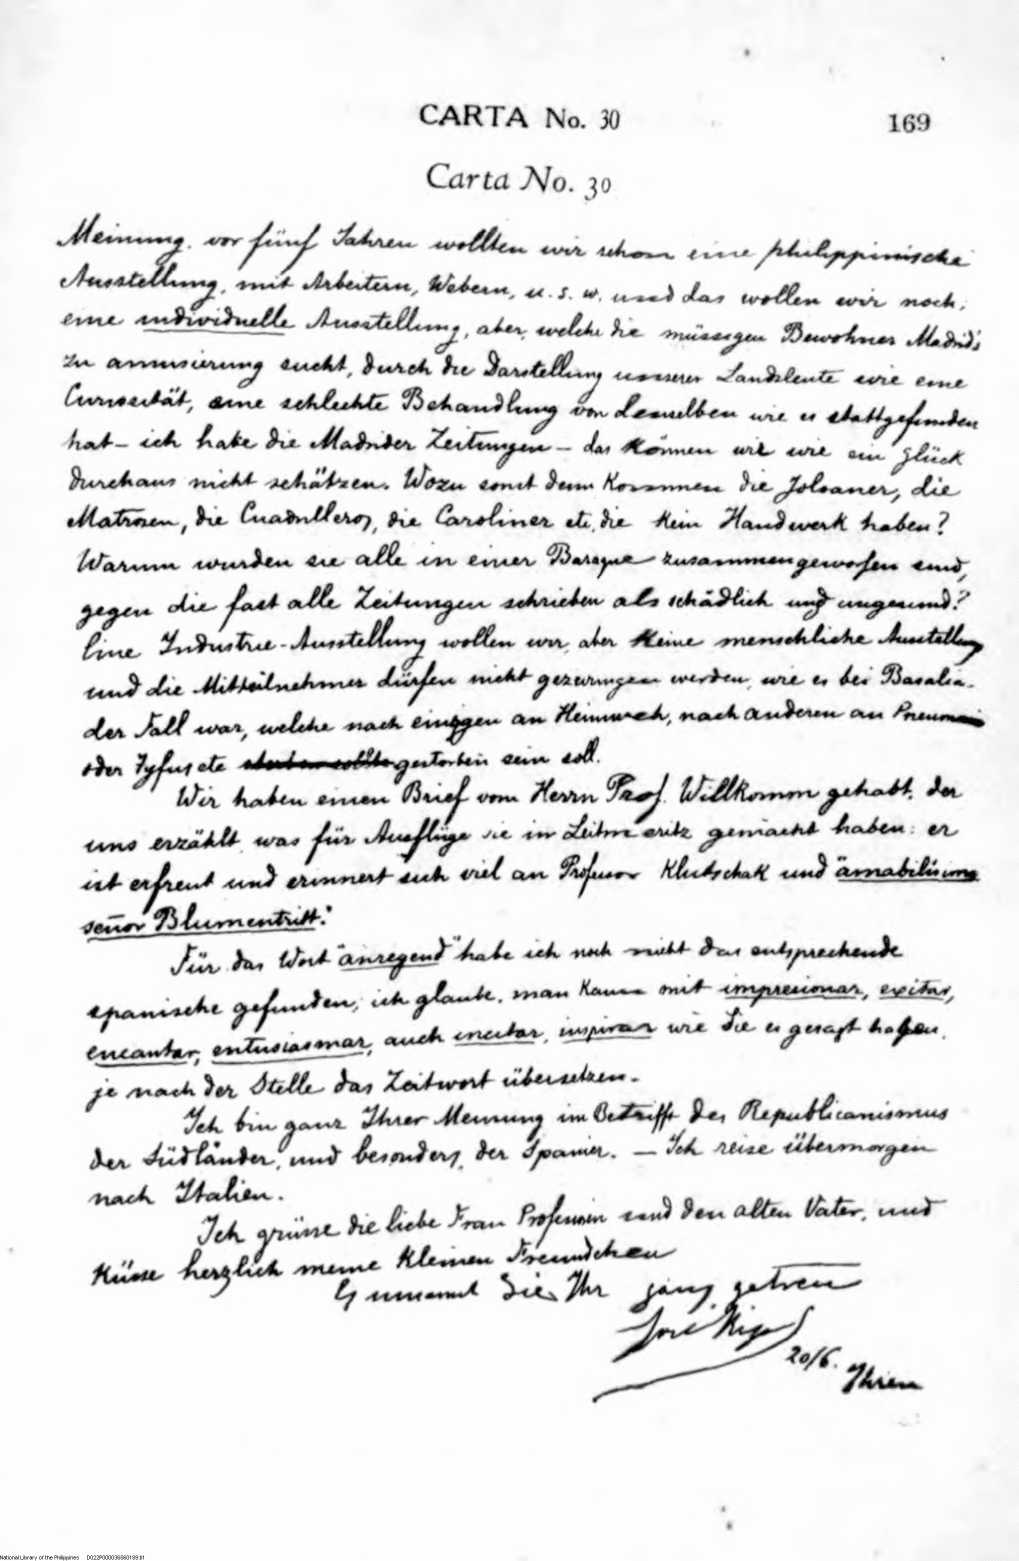 CARTA No. 30
169
Carta No. 30
Meinung. vor fünf Jahren wollten wir schon eine philippinische
Ausstellung, mit Arbeitern, Webern, u. s. w. und das wollen wir noch;
eine individuelle Ausstellung, aber, welche die müssigen Bewohner Madrid's
zu amusierung sucht, durch die Darstellung unserer Landsleute wie eine
Curiosität, eine schlechte Behandlung von denselben wie es stattgefunden
hat – ich habe die Madrider Zeitungen – das können wir wie ein Glück
durchaus nicht schätzen. Wozu sonst denn kommen die Joloaner, die
Matrosen, die Cuadrilleros, die Caroliner etc, die kein Handwerk haben?
Warum wurden sie alle in einer Baraque zusammengeworfen sind,
gegen die fast alle Zeitungen schrieben als schädlich und ungesund?
Eine Industrie-Ausstellung wollen wir, aber keine menschliche Ausstellung
und die Mitteilnehmer dürfen nicht gezwungen werden, wie es bei Basalia-
der Fall war, welche nach einigen an Heimweh, nach anderen an
oder Tyfus etc gestorben sein soll.
Wir haben einen Brief vom Herrn Prof. Willkomm gehabt, der
uns erzählt was für Ausflüge sie in Leitmeritz gemacht haben: er
ist erfreut und erinnert sich viel an Professor Klutschak und amabilisimo
señor Blumentritt."
Für das Wort "anregend" habe ich noch nicht das entsprechende
spanische gefunden; ich glaube, man kann mit impresionar, exitar,
encantar, entusiasmar, auch incitar, inspirar wie Sie es gesagt haben,
je nach der Stelle das Zeitwort übersetzen.
Ich bin ganz Ihrer Meinung im Betrifft des Republicanismus
der Südländer, und besonders, der Spanier. – Ich reise übermorgen
nach Italien.
Ich grüsse die liebe Frau Professorin und den alten Vater, und
küsse herzlich meine kleinen Freundchen
Es umarmt Sie Ihr ganz getreu
José Rizal
20/6.
Ihren
National Library of the Philippines